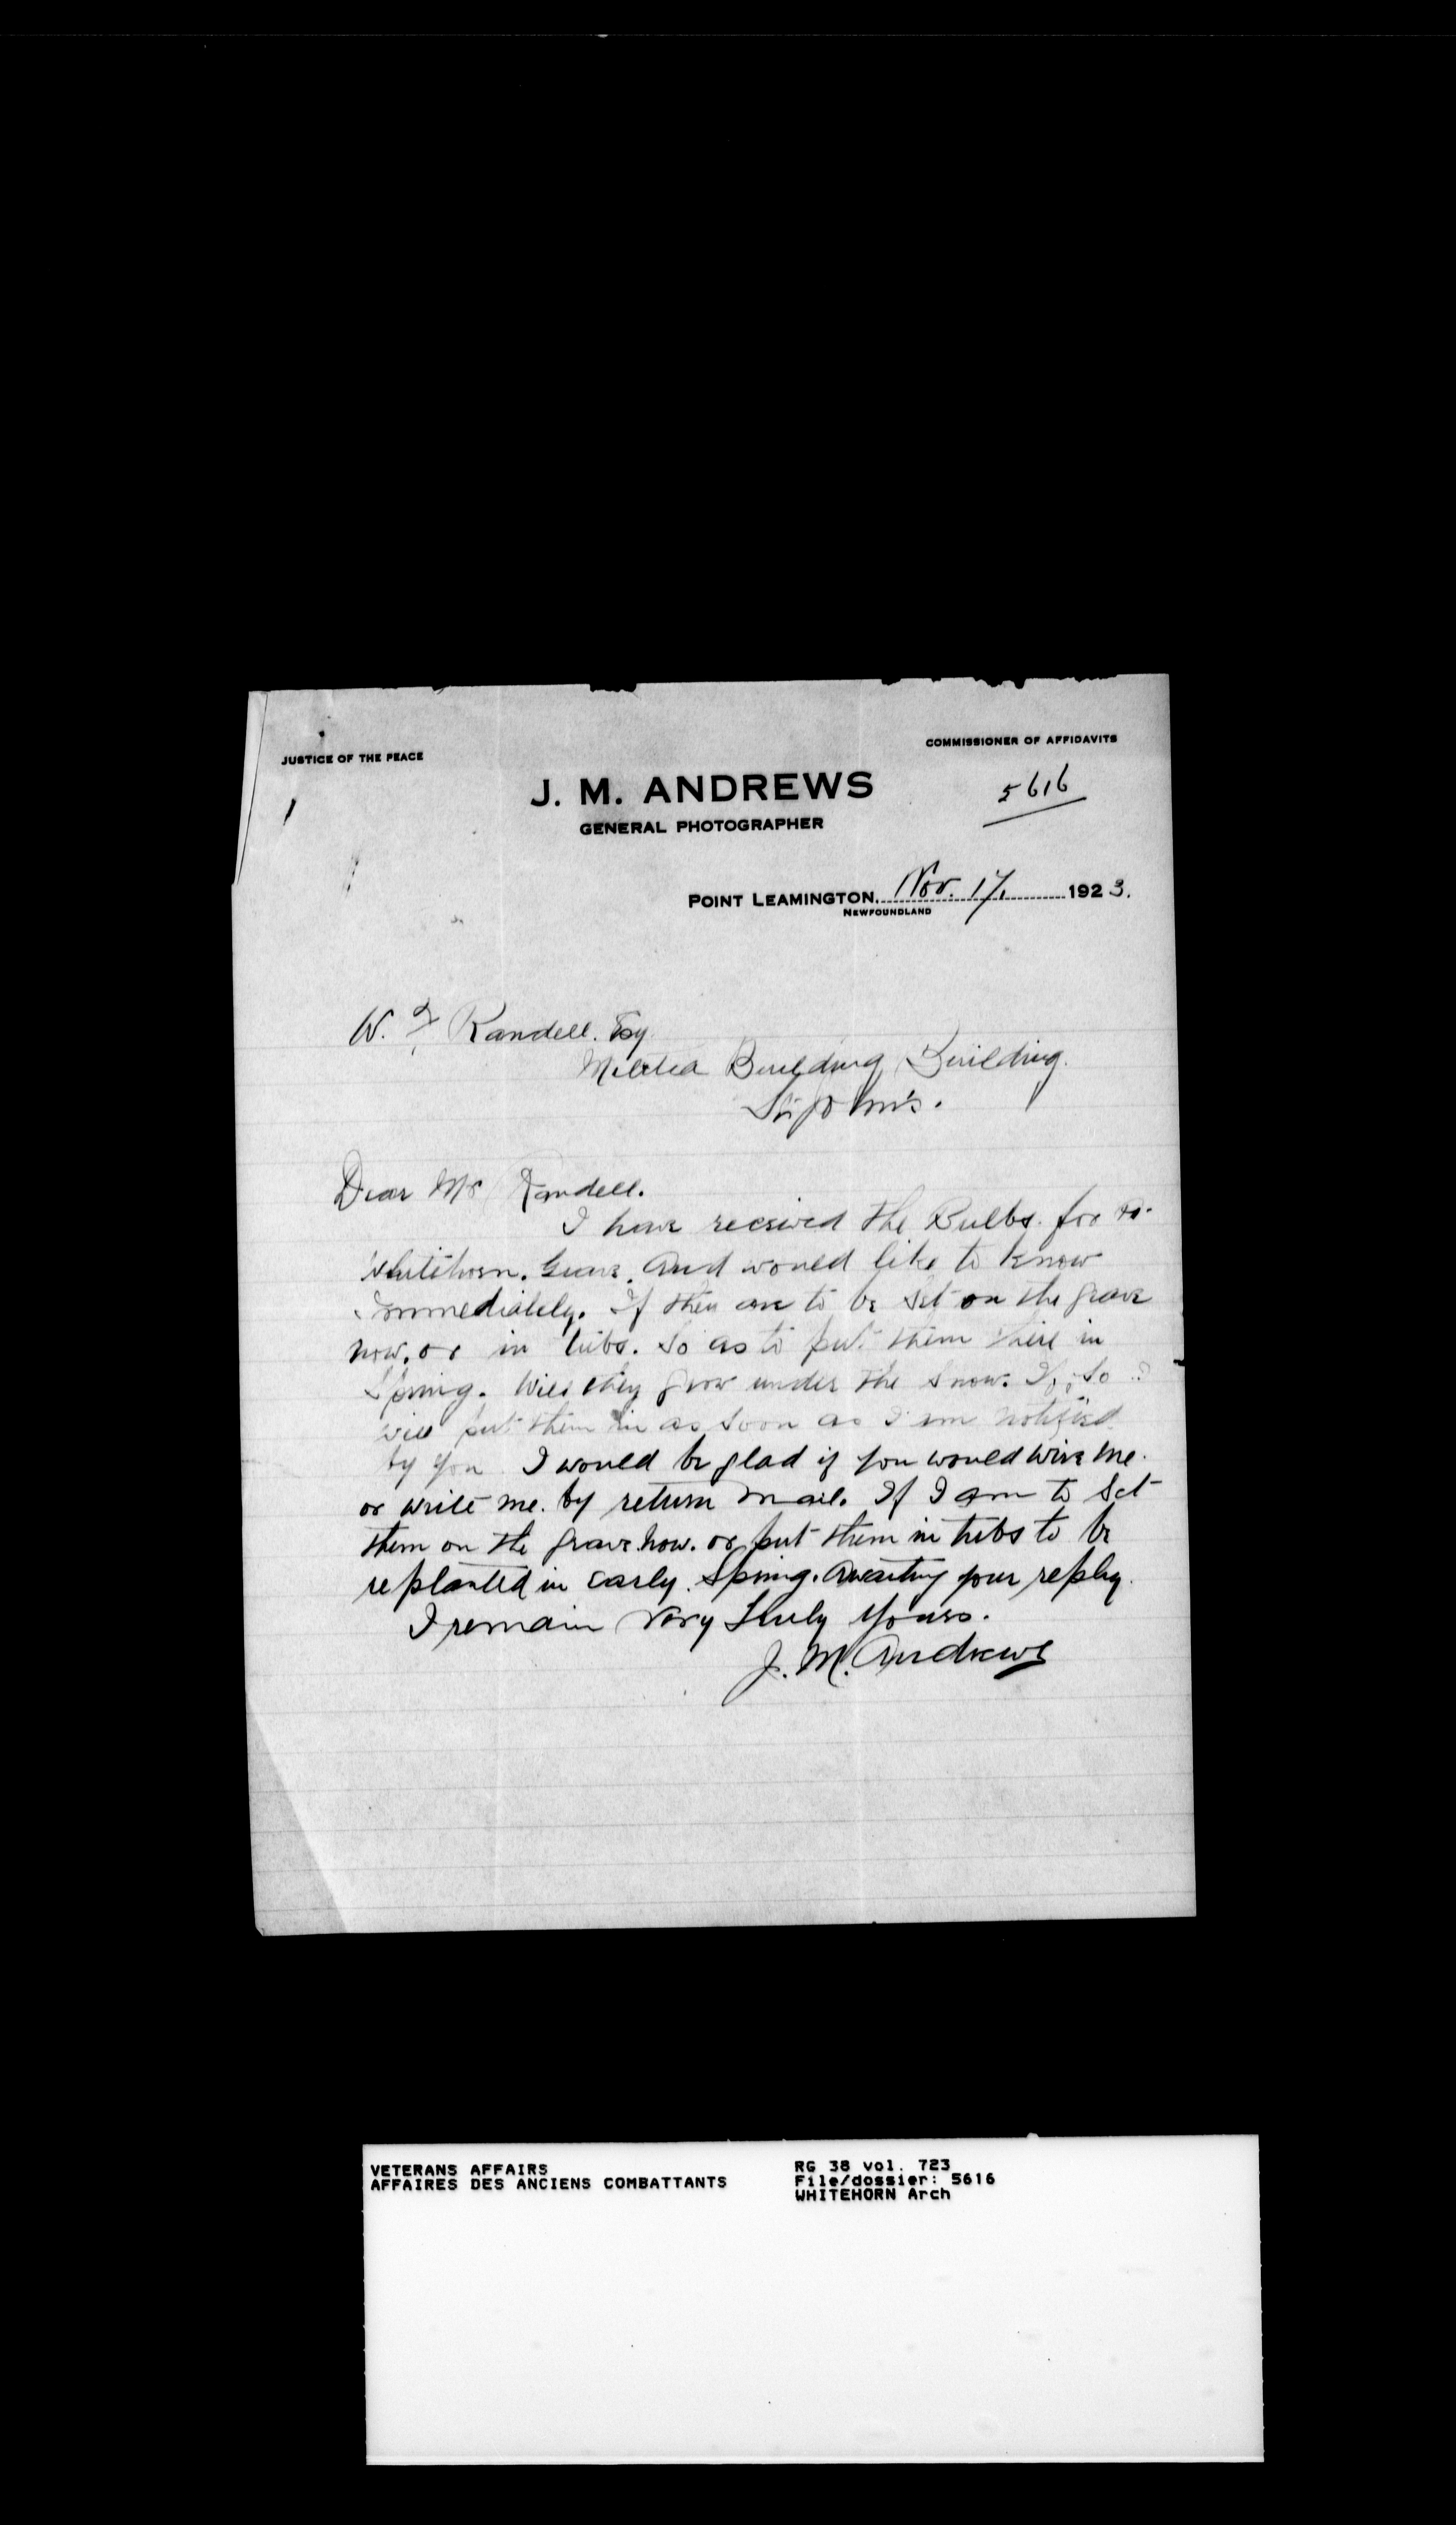 JUSTICE OF THE PEACE
COMMISSIONER OF AFFIDAVITS
J. M. ANDREWS
GENERAL PHOTOGRAPHER
5616
POINT LEAMINGTON, Nov. 17. 1923.
NEWFOUNDLAND
W. F Randell. Esq.
Militia Building Building.
St John's.
Dear Mr Randell.
I have recsived the Bulbs. for
Whitehorn. Grave. And would like to know
Immediately. If they are to be Set on the grave
now. or in tubs. So as to put them there in
Spring. Will they grow under the Snow. If, So I
will put them in as Soon as I am notified
by you I would be glad if you would wire me.
or write me. by return mail. If I am to Set
them on the grave now. or put them in tubs to be
replanted in early. Spring. Awaiting your reply.
I remain Very Truly Yours.
J. M. Andrews
VETERANS AFFAIRS
AFFAIRES DES ANCIENS COMBATTANTS
RG 38 vol. 723
File/dossier: 5616
WHITEHORN Arch